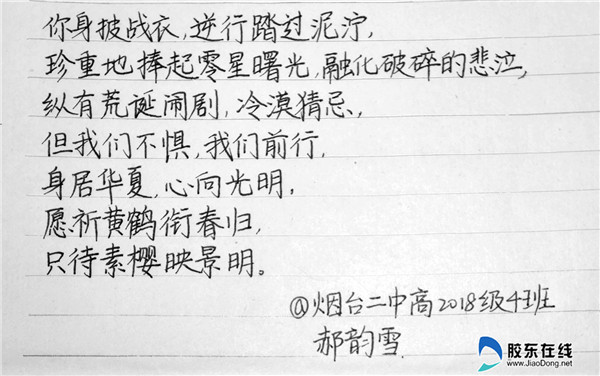 你身披战衣,逆行踏过泥泞,
珍重地捧起零星曙光,融化破碎的悲泣,
纵有荒诞闹剧,冷漠猜忌,
但我们不惧,我们前行,
身居华夏,心向光明,
愿祈黄鹤衔春归,
只待素樱映景明。
@烟台二中高2018级4班
郝韵雪
胶东在线
www.JiaoDong.net